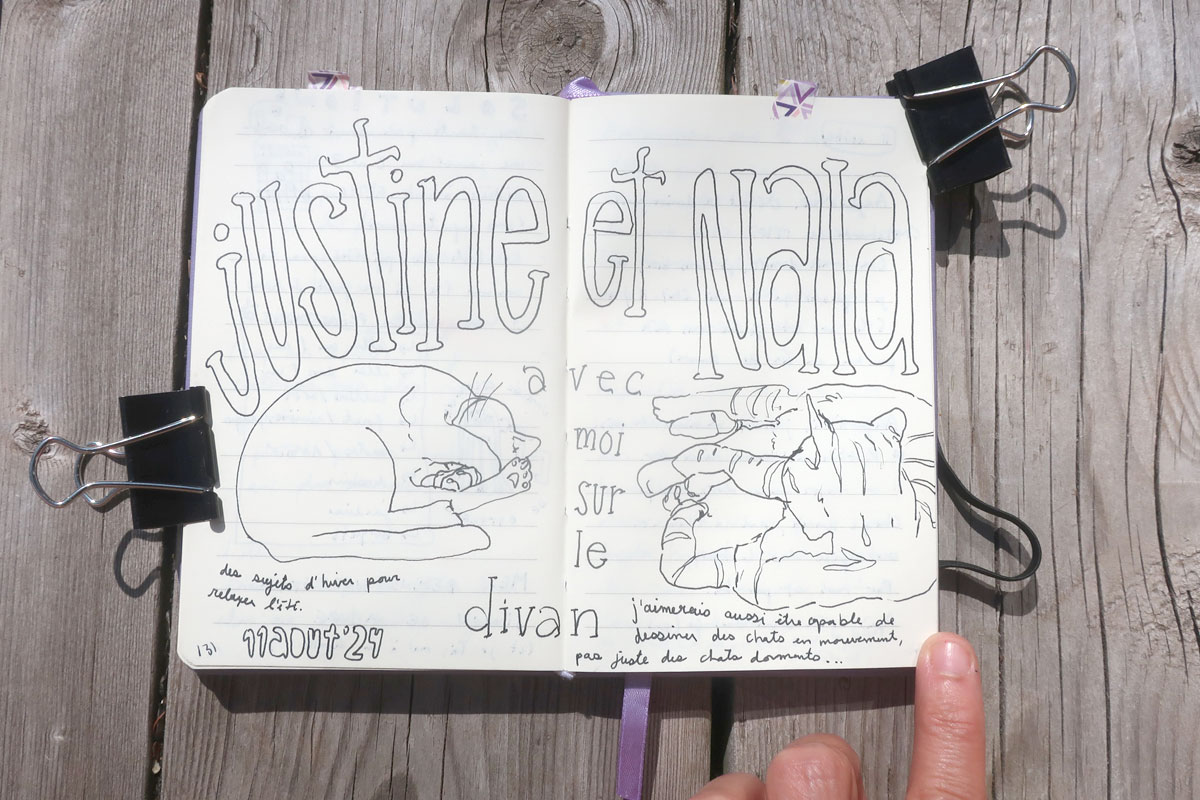 justine et Nala
avec
moi
sur
le
divan
des sujets d'hiver pour
relaxer l'été.
11 aout '24
131
j'aimerais aussi être capable de
dessiner des chats en mouvement,
pas juste des chats dormants...